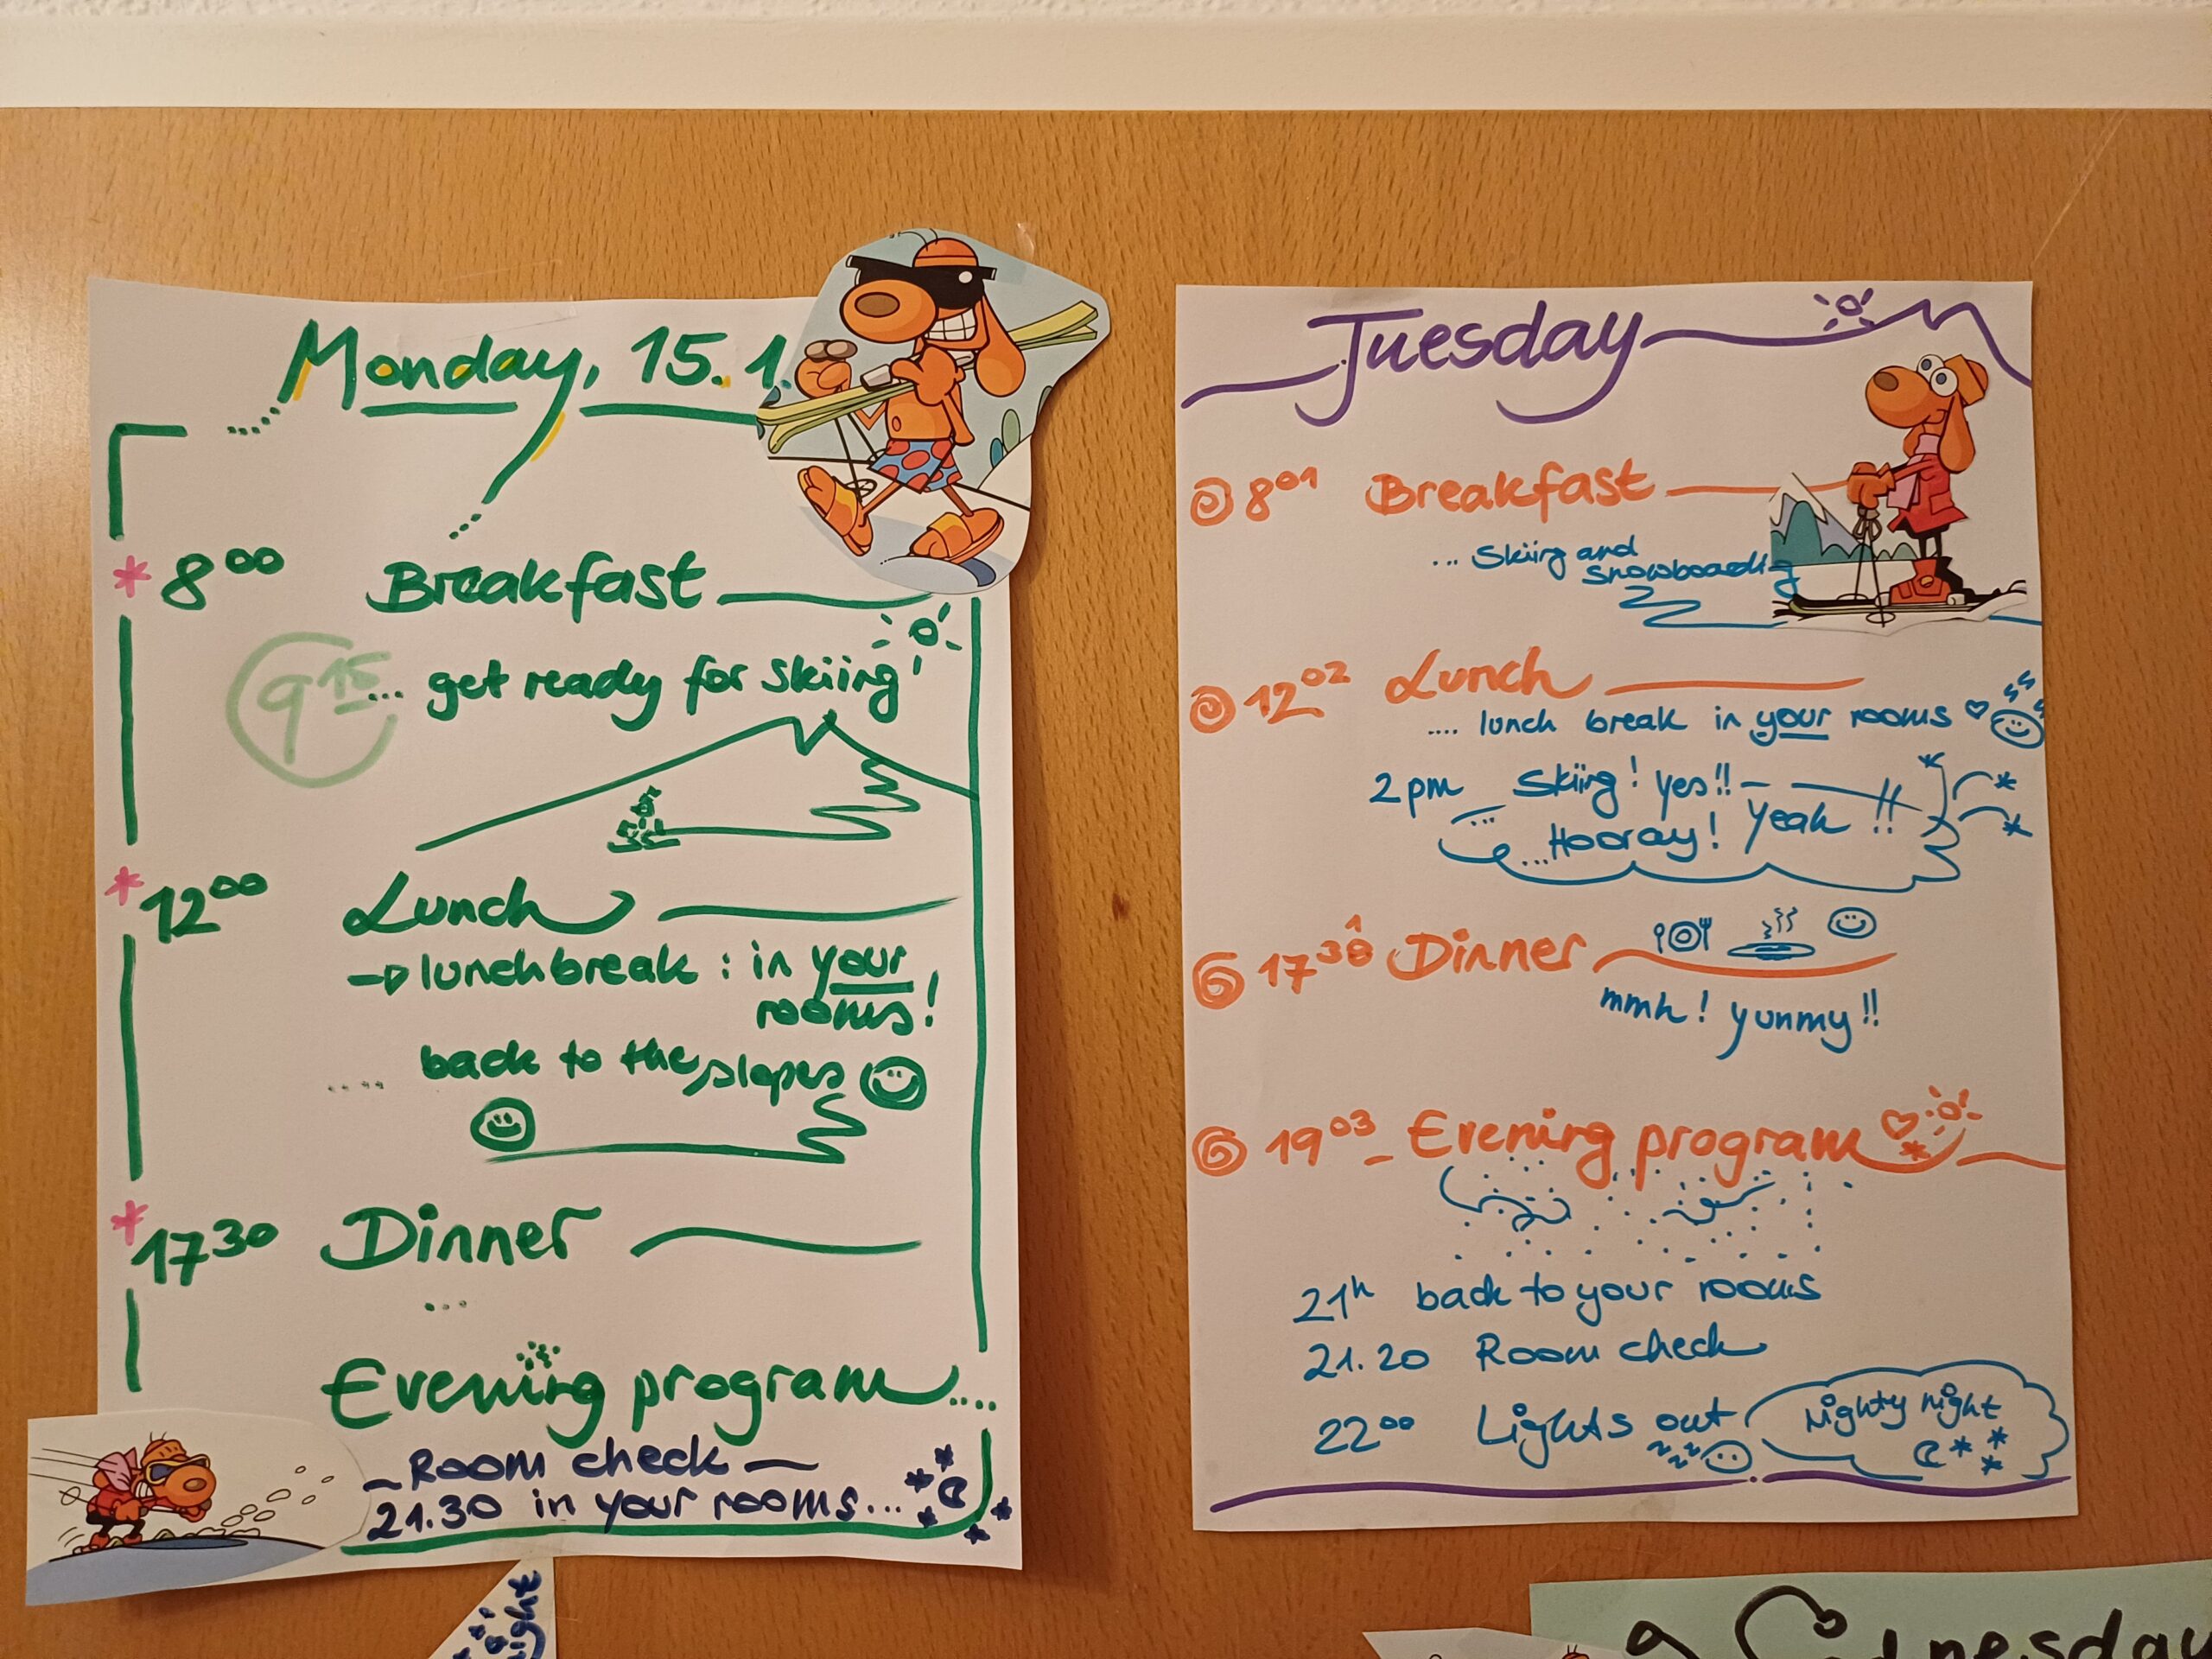 Monday, 15. 1.
* 8⁰⁰ Breakfast
9¹⁵ ... get ready for skiing!
* 12⁰⁰ Lunch
→ lunchbreak : in your
rooms!
.... back to the slopes
* 17³⁰ Dinner
...
Evening program....
Room check
21.30 in your rooms...
night
Tuesday
8⁰¹ Breakfast
... Skiing and
snowboarding
12⁰² Lunch
.... lunch break in your rooms
2 pm Skiing! yes!!
... Hooray! Yeah!!
17³¹ Dinner
mmh! yummy!!
19⁰³ Evening program
21ʰ back to your rooms
21.20 Room check
22⁰⁰ Lights out
zzz
Nighty night
Wednesday